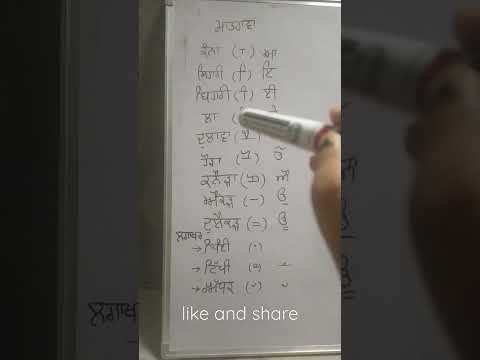 ਮਾਤਰਾਵਾ
ਕੰਨਾ (ਾ) ਆ
ਸਿਹਾਰੀ (ਿ) ਇ
ਬਿਹਾਰੀ (ੀ) ਈ
ਲਾ
ਦੁਲਾਵਾ
ਹੋੜਾ (ੋ) ਓ
ਕਨੌੜਾ (ੌ) ਔ
ਔਕੜ (–) ਉ
ਦੁਲੈਕੜ (=) ਊ
ਲਗਾਖਰ
→ ਬਿੰਦੀ (ਂ)
→ ਟਿੱਪੀ (ੰ)
→ ਅੱਧਕ (ੱ)
like and share